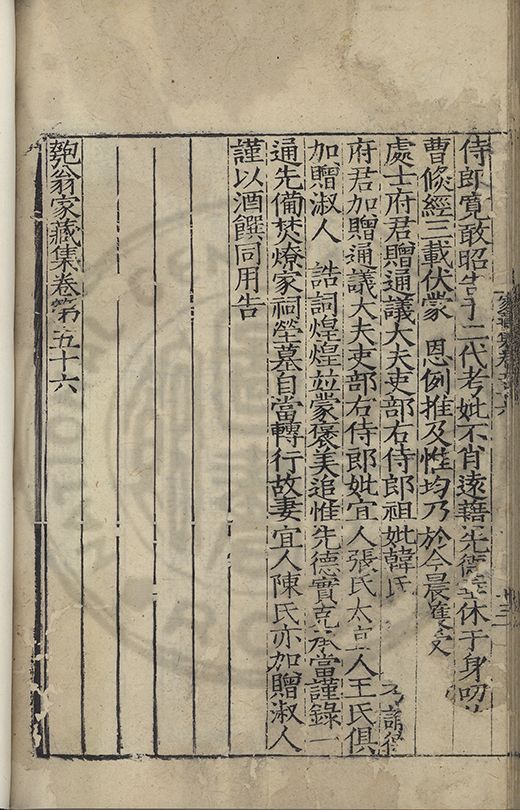 侍郎寛敢昭告于二代考妣不肖遠藉先德 休于身叨
曹倐經三載伏蒙 恩例推及惟均乃於今晨隻受
處士府君贈通議大夫吏部右侍郎祖妣韓氏
府君加贈通議大夫吏部右侍郎妣宜人張氏太 人王氏俱
加贈淑人 誥詞煌煌並蒙褒美追惟先德實克承當謹錄一
通先備焚燎家祠塋墓自當轉行故妻宜人陳氏亦加贈淑人
謹以酒饌同用告
匏翁家藏集卷第五十六